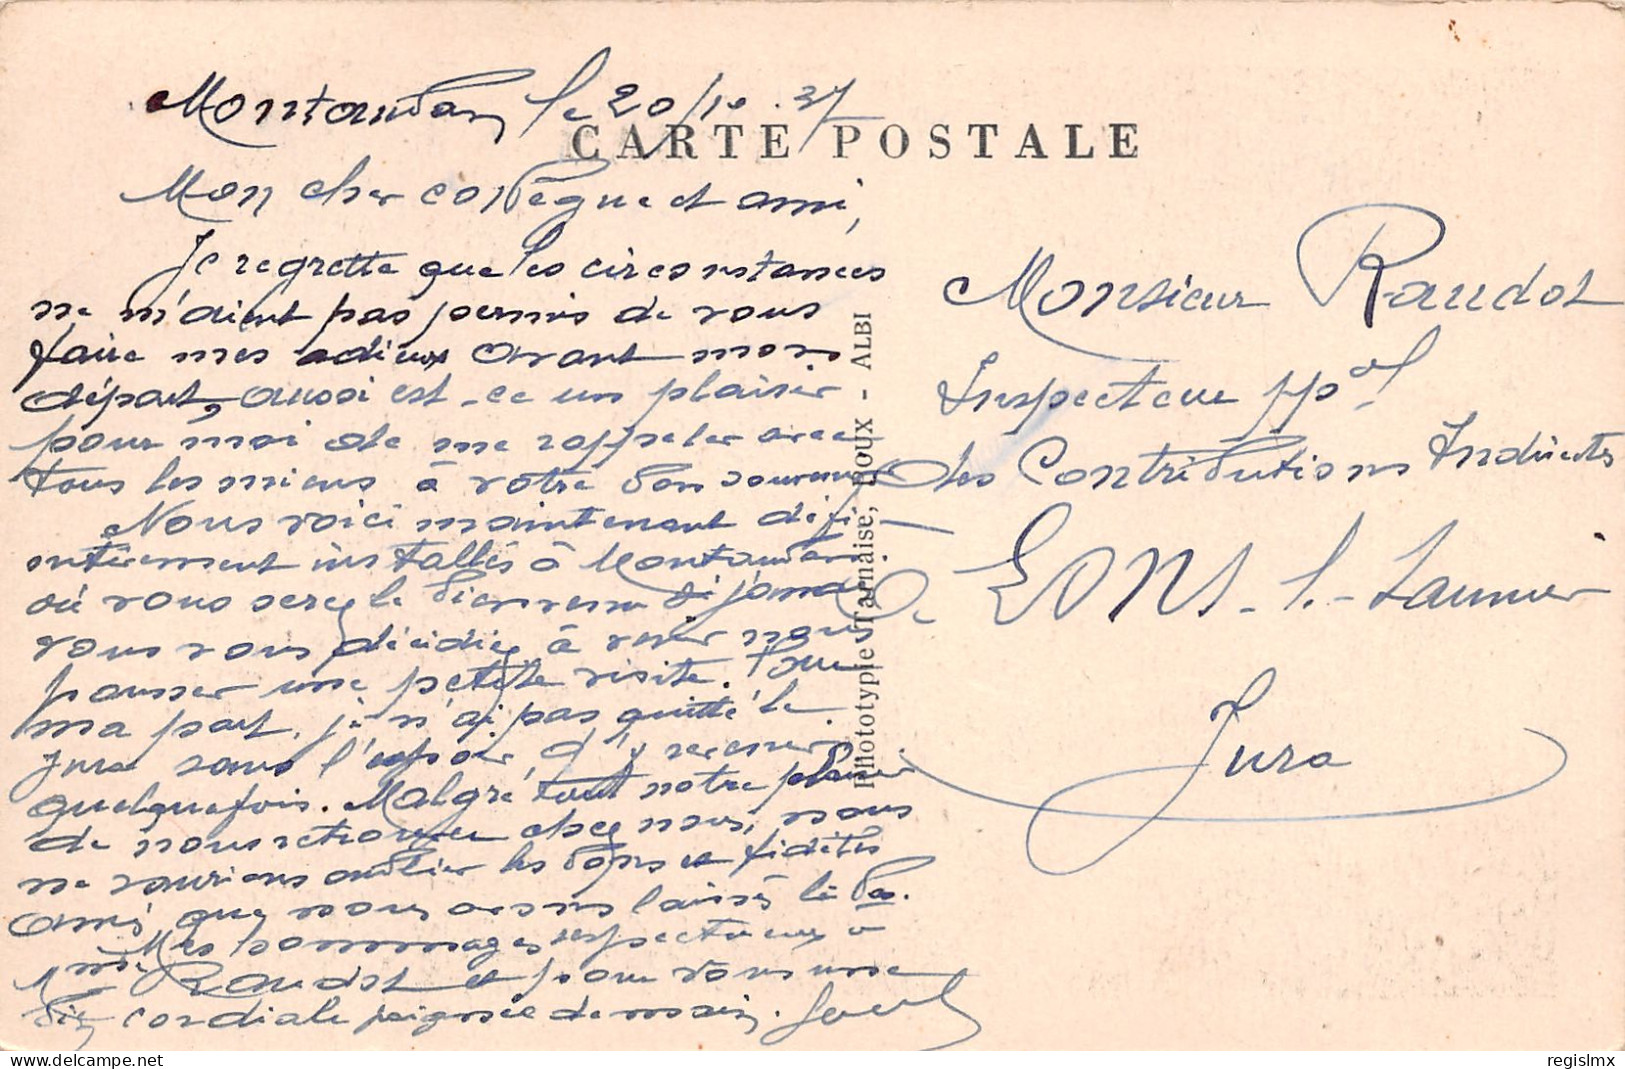 Montauban le 20/10.37
CARTE POSTALE
Mon cher collègue et ami,
Je regrette que les circonstances
ne m'aient pas permis de vous
faire mes adieux avant mon
départ, aussi est-ce un plaisir
pour moi de me rappeler avec
tous les miens à votre bon souvenir
Nous voici maintenant défi-
nitivement installés à Montauban
où vous serez le bienvenu si jamais
vous vous décidiez à venir nous
pousser une petite visite. Pour
ma part, je n'ai pas quitté le
Jura sans l'espoir d'y revenir
quelquefois. Malgré tout notre plaisir
de nous retrouver chez nous, nous
ne saurions oublier les bons et fidèles
amis que nous avons laissés là bas.
Mes hommages respectueux à
Mme Raudot et pour vous une
bien cordiale poignée de main.
Phototypie Tarnaise, BOUX - ALBI
Monsieur Raudot
Inspecteur ppal
des Contributions Indirectes
à Lons-l.-Saunier
Jura
regislmx